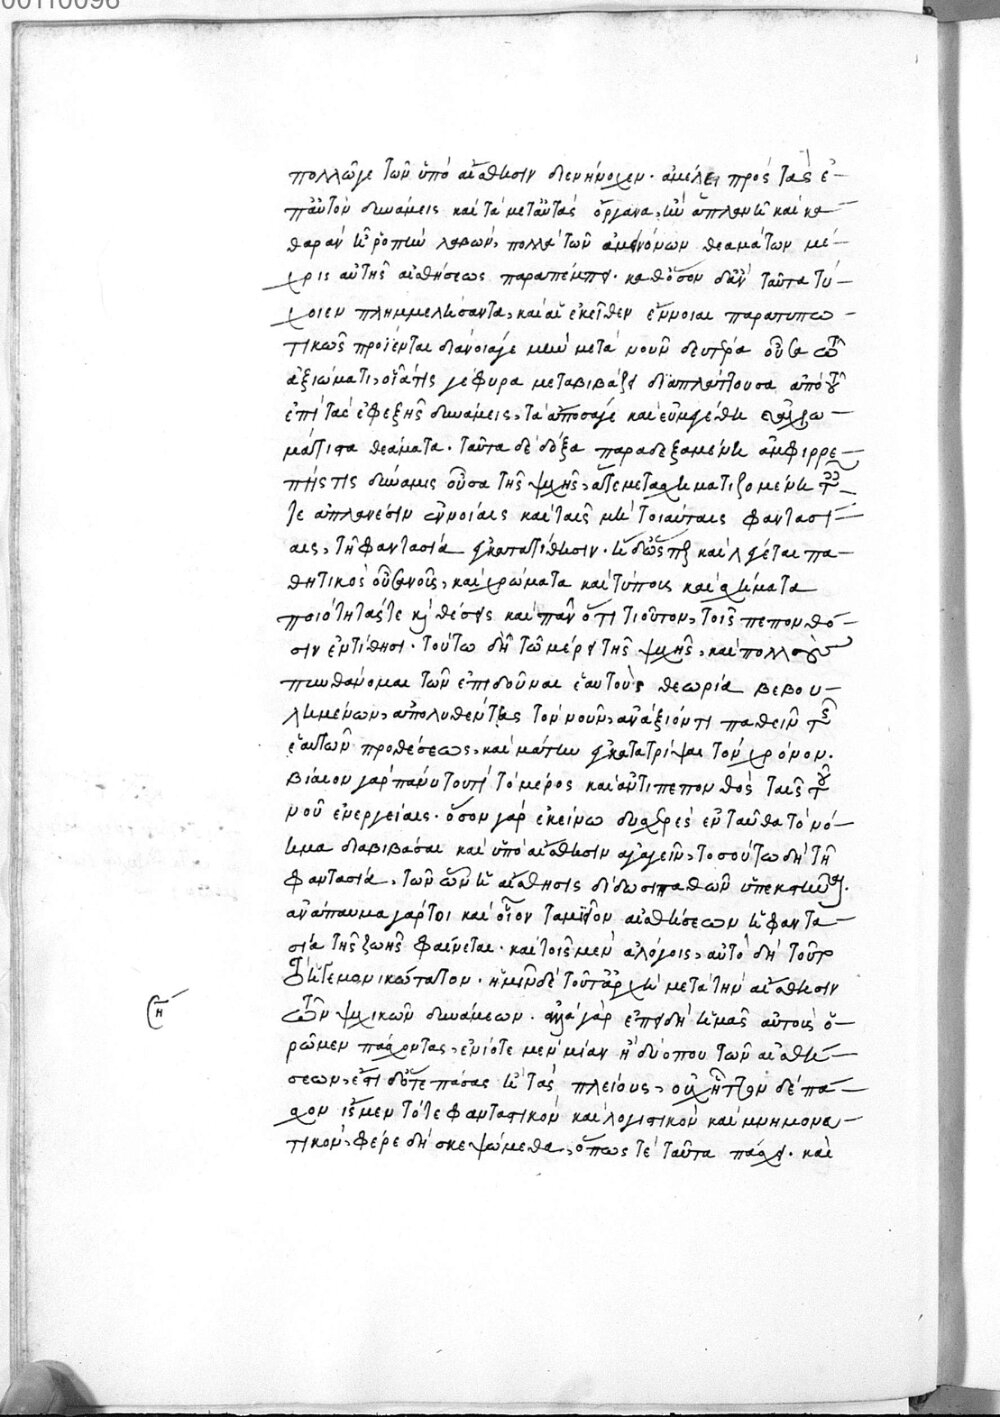 00110096
πολλῶν γε τῶν ὑπὸ αἴσθησιν διενήνοχεν. ἀμέλει πρὸς τὰς ἐ-
π' αὐτὸν δυνάμεις καὶ τὰ μετ' αὐτὰς ὄργανα, ἢν ἀπλανῆ καὶ κα-
θαρὰν τὴν ῥοπὴν λαβὼν, πολλὰ τῶν ἀμεινόνων θεαμάτων μέ-
χρις αὐτῆς αἰσθήσεως παραπέμπει. καθόσον δ' ἂν ταῦτα τύ-
χοιεν πλημμελήσαντα, καὶ αἱ ἐκεῖθεν ἔννοιαι παραποπτω-
τικῶς προϊένται διάνοιά γε μὴν μετὰ νοῦν δευτέρα οὖσα τῶ
ἀξιώματι, οἷά τις γέφυρα μεταβιβάζει διαπλάττουσα ἀπὸ τοῦ
ἐπὶ τὰς ἐφεξῆς δυνάμεις, τὰ ἄποσά γε καὶ ἀμεγέθη καὶ ἀχρω-
μάτιστα θεάματα. ταῦτα δὲ δόξα παραδεξαμένη ἀμφιρρε-
πής τις δύναμις οὖσα τῆς ψυχῆς, ἅτε μετασχηματιζομένη τοῖς
τε ἀπλανέσιν ἐννοίαις καὶ ταῖς μὴ τοιαύταις φαντασί-
αις, τῇ φαντασία ἐγκατατίθησιν. ἡ δ' ὥσπερ καὶ λέγεται πα-
θητικὸς οὖσα νοῦς, καὶ χρώματα καὶ τύπους καὶ σχήματα
ποιότητάς τε καὶ θέσεις καὶ πᾶν ὅ,τι τοιοῦτον, τοῖς πεπονθό-
σιν ἐντίθησι. τούτω δὴ τῶ μέρει τῆς ψυχῆς, καὶ πολλοὺς
πυνθάνομαι τῶν ἐπιδοῦναι ἑαυτοὺς θεωρία βεβου-
λημένων, ἀπολυθέντας τὸν νοῦν, ἀνάξιόν τι παθεῖν τῆς
ἑαυτῶν προθέσεως, καὶ μάτην ἐγκατατρίψαι τὸν χρόνον.
βίαιον γὰρ πάνυ τουτὶ τὸ μέρος καὶ ἀντιπεπονθὸς ταῖς τοῦ
νοῦ ἐνεργείαις. ὅσον γὰρ ἐκείνω δυσχερὲς ἐνταῦθα τὸ νό-
ημα διαβιβάσαι καὶ ὑπὸ αἴσθησιν ἀγαγεῖν, τοσούτω δὴ τῇ
φαντασία, τῶν ὧν ἡ αἴσθησις δίδωσι παθῶν ὑπεκστῆναι.
ἀνάπαυμα γάρ τοι καὶ οἷον ταμεῖον αἰσθήσεων ἡ φαντα-
σία τῆς ζωῆς φαίνεται. καὶ τοῖς μὲν ἀλόγοις, αὐτὸ δὴ τοῦτο
τὸ ἡγεμονικώτατον. ἡμῖν δὲ τοῦτ' ἀρχὴ μετὰ τὴν αἴσθησιν
τῶν ψυχικῶν δυνάμεων. ἀλλὰ γὰρ ἐπειδὴ ἡμᾶς αὐτοὺς ὁ-
ρῶμεν πάσχοντας, ἐνίοτε μὲν μίαν ἢ δύο που τῶν αἰσθή-
σεων, ἔστι δ' ὅτε πάσας ἢ τὰς πλείους, οὐχ ἧττον δὲ πά-
σχον ἴσμεν τό τε φανταστικὸν καὶ λογιστικὸν καὶ μνημονευ-
τικὸν, φέρε δὴ σκεψώμεθα, ὅπως τὲ ταῦτα πάσχει. καὶ